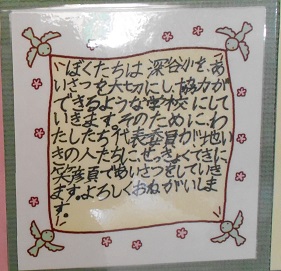 ぼくたちは、深谷小を、あ
いさつを大切にし、協力が
できるような学校にして
いきます。そのために、わ
たしたち代表委員が地い
きの人たちに、せっきょくてきに
笑顔であいさつをしていき
ます。よろしくおねがいしま
す。